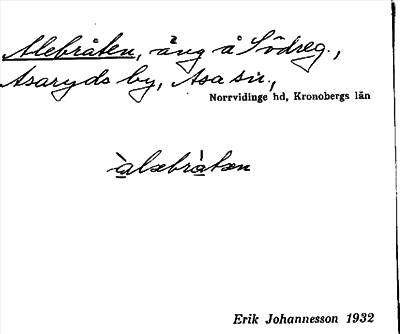 Alebråten, äng å Södreg.,
Asaryds by, Asa sn.,
Norrvidinge hd, Kronobergs län
àlsbràtsn
Erik Johannesson 1932